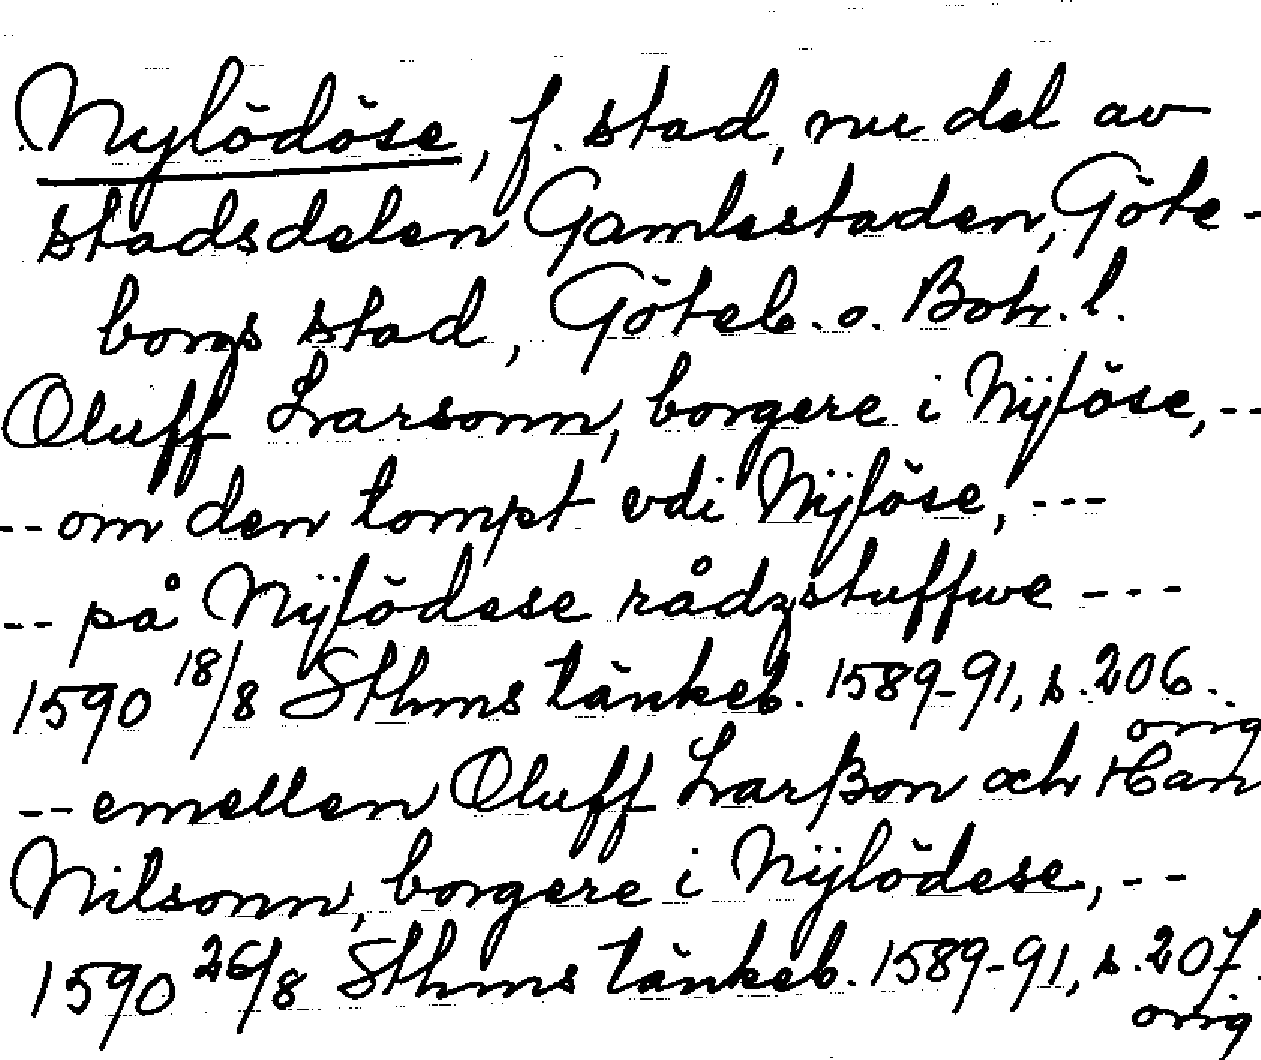 Nylödöse, f. stad, nu del av
stadsdelen Gamlestaden, Göte-
borgs stad, Göteb. o. Boh. l.
Oluff Larsonn, borgere i Nÿlöse, --
-- om den tompt vdi Nÿlöse, ---
-- på Nÿlödese rådzstuffwe ---
1590 18/8 Sthms tänkeb. 1589-91, s. 206.
orig
-- emellen Oluff Larßon och Han
Nilsonn, borgere i Nÿlödese, --
1590 26/8 Sthms tänkeb. 1589-91, s. 207.
orig